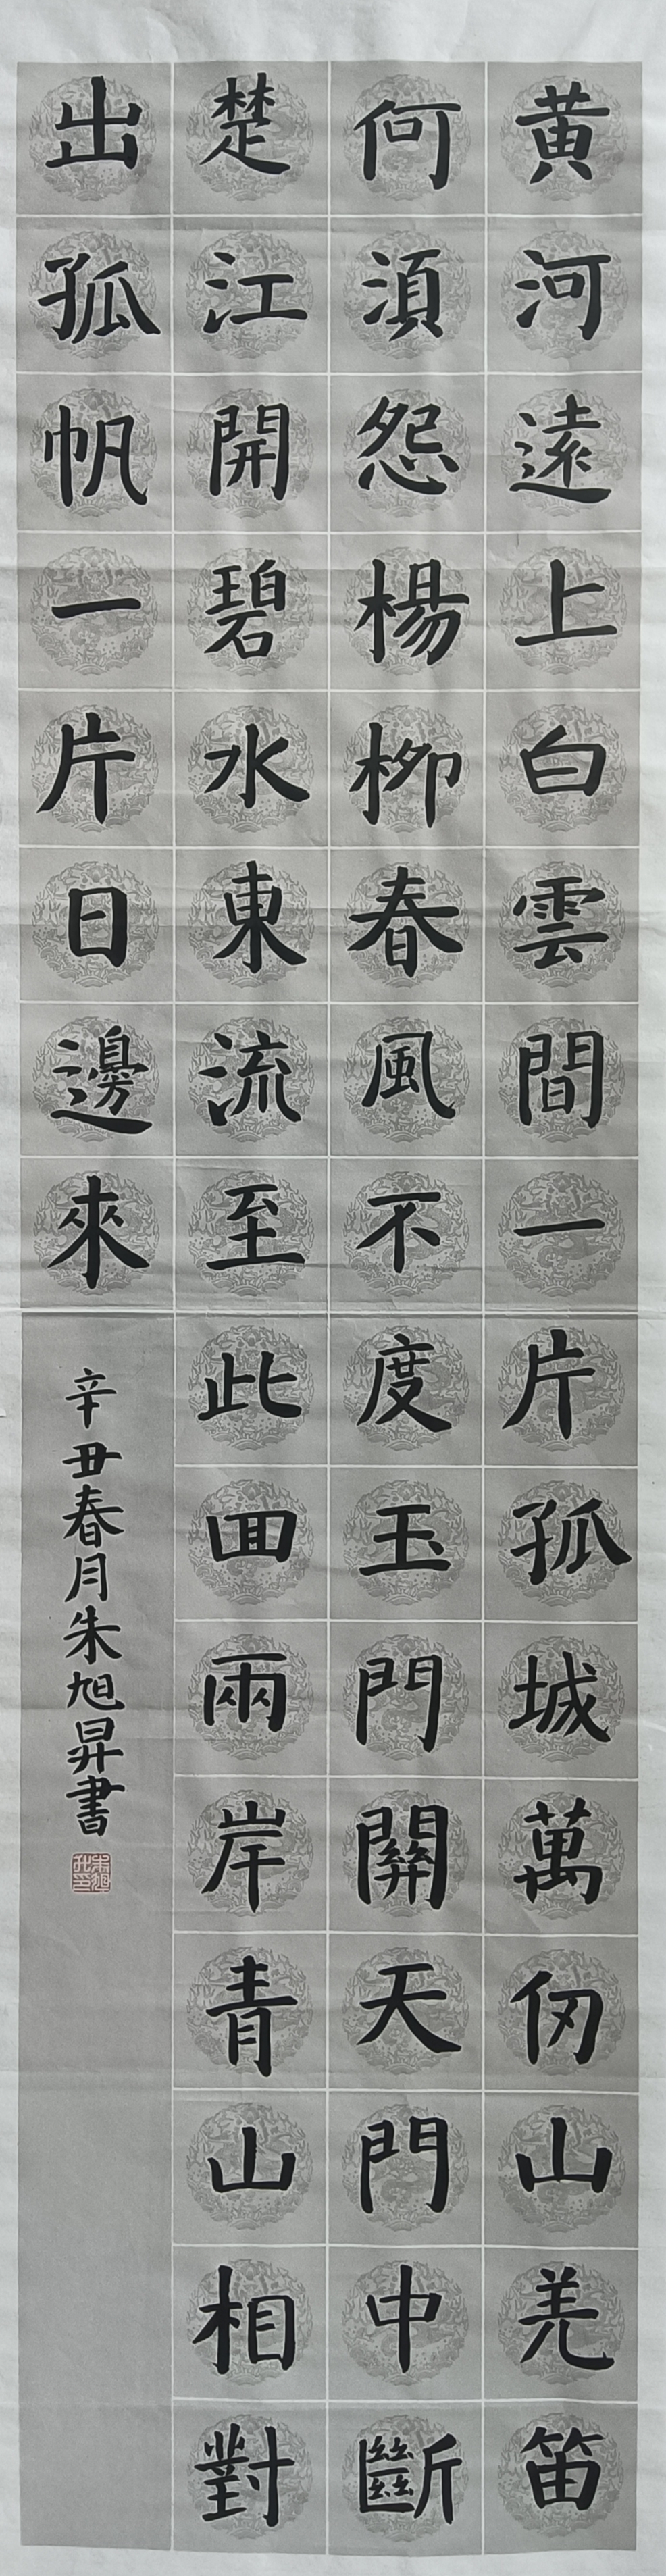 黄河遠上白雲間一片孤城萬仞山羌笛
何須怨楊柳春風不度玉門關天門中斷
楚江開碧水東流至此回兩岸青山相對
出孤帆一片日邊來
辛丑春月朱旭昇書